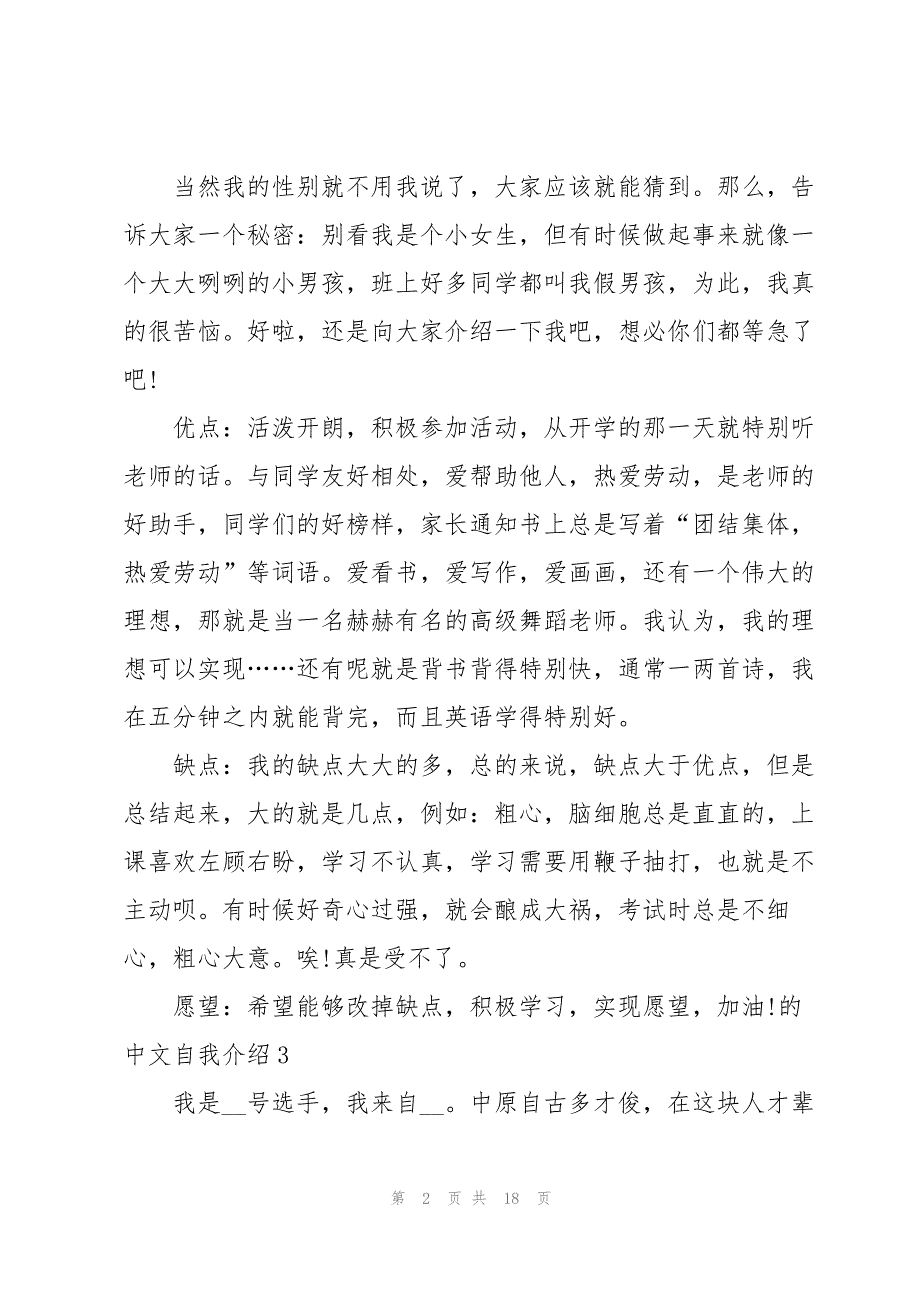 当然我的性别就不用我说了，大家应该就能猜到。那么，告
诉大家一个秘密：别看我是个小女生，但有时候做起事来就像一
个大大咧咧的小男孩，班上好多同学都叫我假男孩，为此，我真
的很苦恼。好啦，还是向大家介绍一下我吧，想必你们都等急了
吧!
优点：活泼开朗，积极参加活动，从开学的那一天就特别听
老师的话。与同学友好相处，爱帮助他人，热爱劳动，是老师的
好助手，同学们的好榜样，家长通知书上总是写着“团结集体，
热爱劳动”等词语。爱看书，爱写作，爱画画，还有一个伟大的
理想，那就是当一名赫赫有名的高级舞蹈老师。我认为，我的理
想可以实现……还有呢就是背书背得特别快，通常一两首诗，我
在五分钟之内就能背完，而且英语学得特别好。
缺点：我的缺点大大的多，总的来说，缺点大于优点，但是
总结起来，大的就是几点，例如：粗心，脑细胞总是直直的，上
课喜欢左顾右盼，学习不认真，学习需要用鞭子抽打，也就是不
主动呗。有时候好奇心过强，就会酿成大祸，考试时总是不细
心，粗心大意。唉!真是受不了。
愿望：希望能够改掉缺点，积极学习，实现愿望，加油!的
中文自我介绍3
我是__号选手，我来自__。中原自古多才俊，在这块人才辈
第 2 页 共 18 页